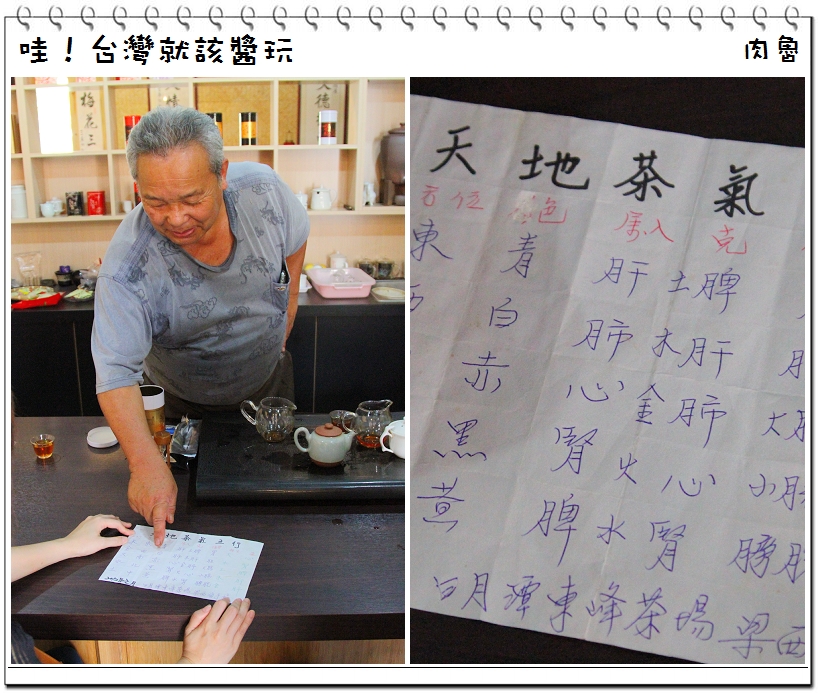 哇！台灣就該醬玩
肉魯
梅花三
地茶氣五行
天地茶氣
方位 色 屬入 克
東 青 肝 土脾
白 肺 木肝
赤 心 金肺 大腸
黑 腎 火心 小腸
黃 脾 水腎 膀胱
日月潭東峰茶場 梁西